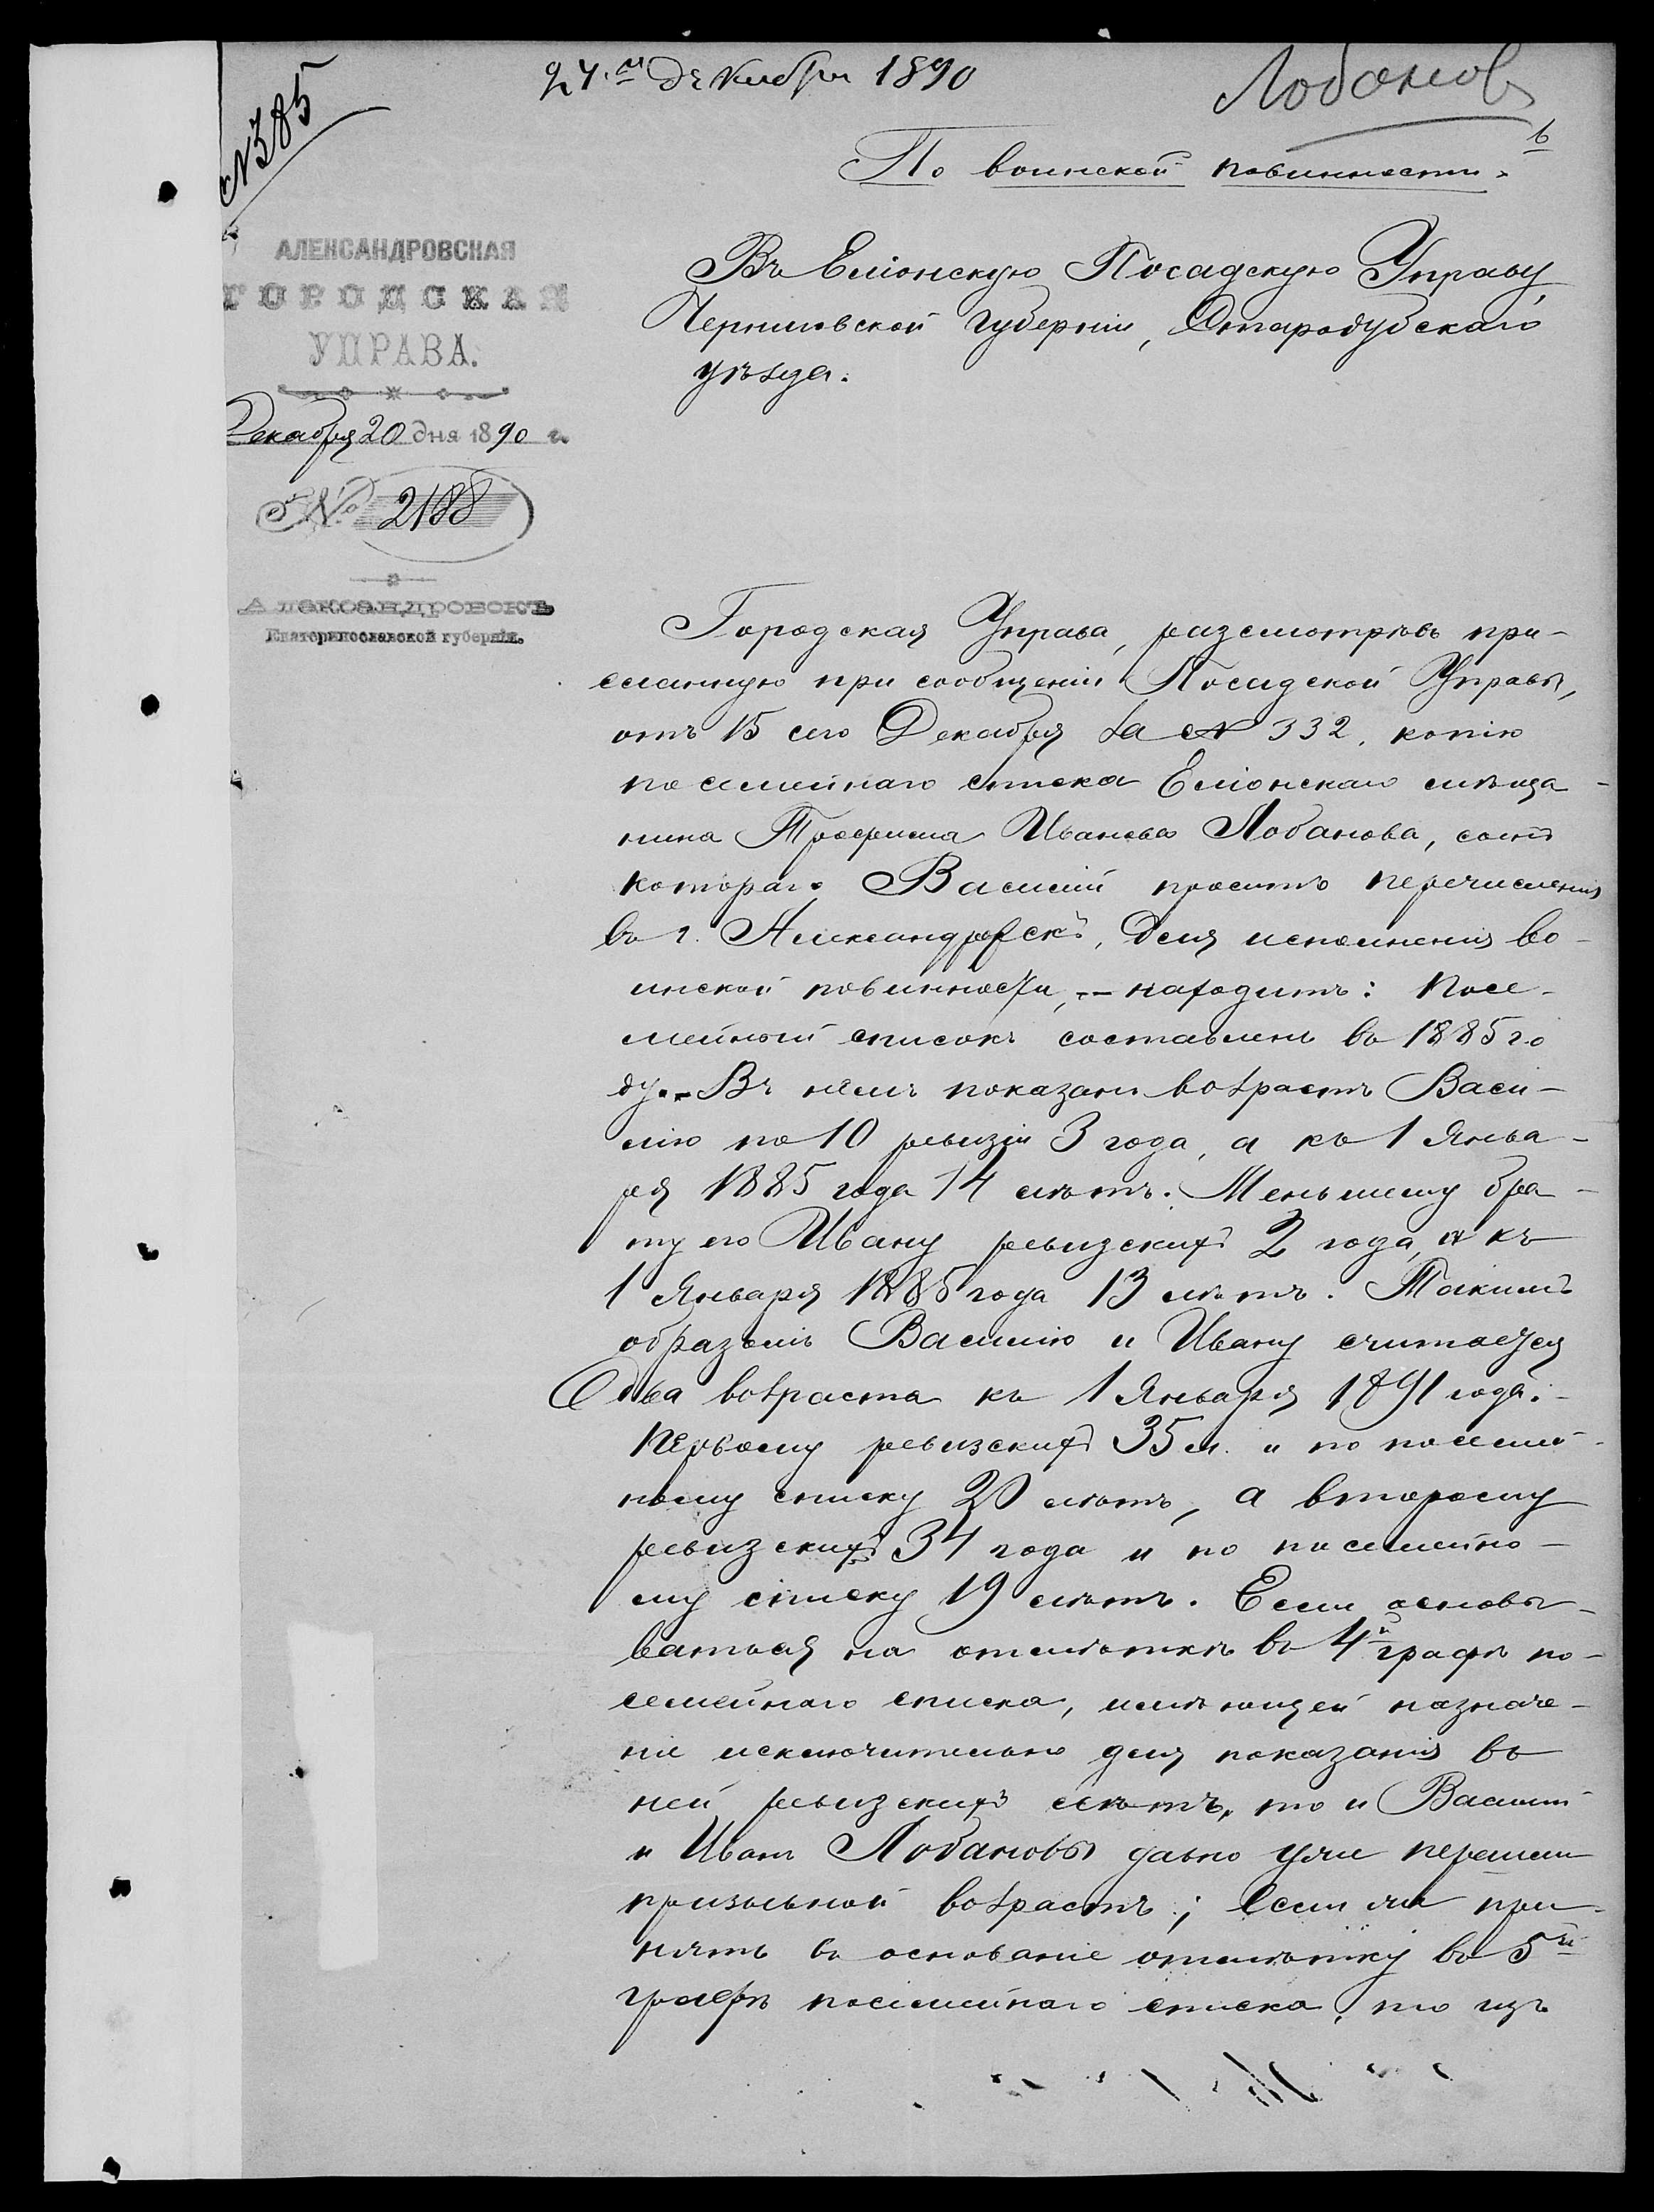 27го декабря 1890
Лобанов
№385
6
По воинской повинности.
АЛЕКСАНДРОВСКАЯ
ГОРОДСКАЯ
УПРАВА.
Декабря 20 дня 1890 г.
№ 2188
Александровскъ
Екатеринославской губерніи.
Въ Еліонскую Посадскую Управу,
Черниговской губерніи, Стародубскаго
уѣзда.
Городская Управа, разсмотрѣвъ при-
сланную при сообщеніи Посадской Управы,
отъ 15 сего Декабря за № 332, копію
посемейнаго списка Еліонскаго мѣща-
нина Трофима Иванова Лобанова, сынъ
котораго Василій проситъ перечисленія
въ г. Александровскъ, для исполненія во-
инской повинности, — находитъ: Посе-
мейный списокъ составленъ въ 1885 го
ду. — Въ немъ показанъ возрастъ Васи-
лію по 10 ревизіи 3 года, а къ 1 Янва-
ря 1885 года 14 лѣтъ. Меньшему бра-
ту его Ивану ревизскихъ 2 года, а къ
1 Января 1885 года 13 лѣтъ. Такимъ
образомъ Василію и Ивану считается
два возраста къ 1 Января 1891 года:-
Первому ревизскихъ 35 л. и по посемей-
ному списку 20 лѣтъ, а второму
ревизскихъ 34 года и по посемейно-
му списку 19 лѣтъ. Если основы-
ваться на отмѣткѣ въ 4й графѣ по-
семейнаго списка, имѣющей назначе-
ніе исключительно для показанія въ
ней ревизскихъ лѣтъ, то и Василій
и Иванъ Лобановы давно уже перешли
призывной возрастъ; если же при-
нять въ основаніе отмѣтку въ 5й
графѣ посемейнаго списка, то изъ